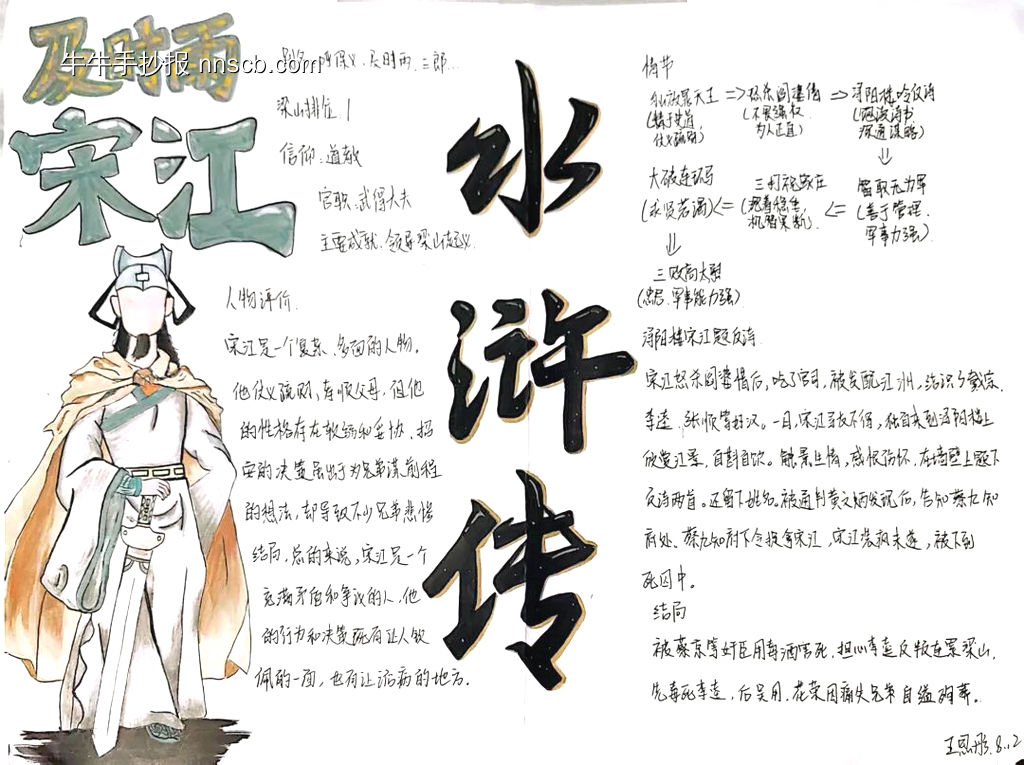 及时雨
牛牛手抄报 nnscb.com
宋江
呼保义、及时雨、三郎…
梁山排位 1
信仰:道教
官职:武得大夫
主要成就:领导梁山起义
人物评价
宋江是一个复杂、多面的人物,
他仗义疏财、孝顺父母,但他
的性格存在软弱和妥协,招
安的决策虽出于为兄弟谋前程
的想法,却导致不少兄弟悲惨
结局,总的来说,宋江是一个
充满矛盾和争议的人,他
的行为和决策既有让人钦
佩的一面,也有让诟病的地方。
水
浒
传
情节
私放晁天王 => 怒杀阎婆惜 => 浔阳楼吟反诗
(精于世道 仗义疏财) (不畏强权 为人正直) (饱读诗书 深通谋略)
⇓
大破连环马 三打祝家庄 智取无为军
(求贤若渴) <= (沉着稳重, 机智果断) <= (善于管理, 军事力强)
⇓
三败高太尉
(忠君、军事能力强)
浔阳楼宋江题反诗
宋江怒杀阎婆惜后,吃了官司,被发配江州,结识了戴宗、
李逵、张顺等好汉。一日,宋江寻友不得,独自来到浔阳楼上
欣赏江景,自斟自饮。触景生情,感恨伤怀,在墙壁上题下
反诗两首。还留下姓名。被通判黄文炳发现后,告知蔡九知
府处、蔡九知府下令捉拿宋江,宋江装疯未遂,被下到
死囚中。
结局
被蔡京等奸臣用毒酒害死,担心李逵反叛连累梁山,
先毒死李逵,后吴用、花荣因痛失兄弟自缢殉葬。
8.12